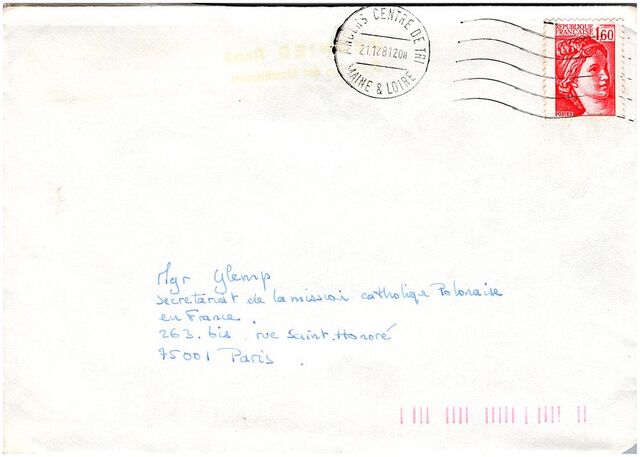 ANGERS CENTRE DE TRI
21.12 81 20H
MAINE & LOIRE
REPUBLIQUE
FRANCAISE
1,60
POSTES
Mgr Glemp
Secrétariat de la mission catholique Polonaise
en France.
263. bis. rue Saint.Honoré
75001 Paris.